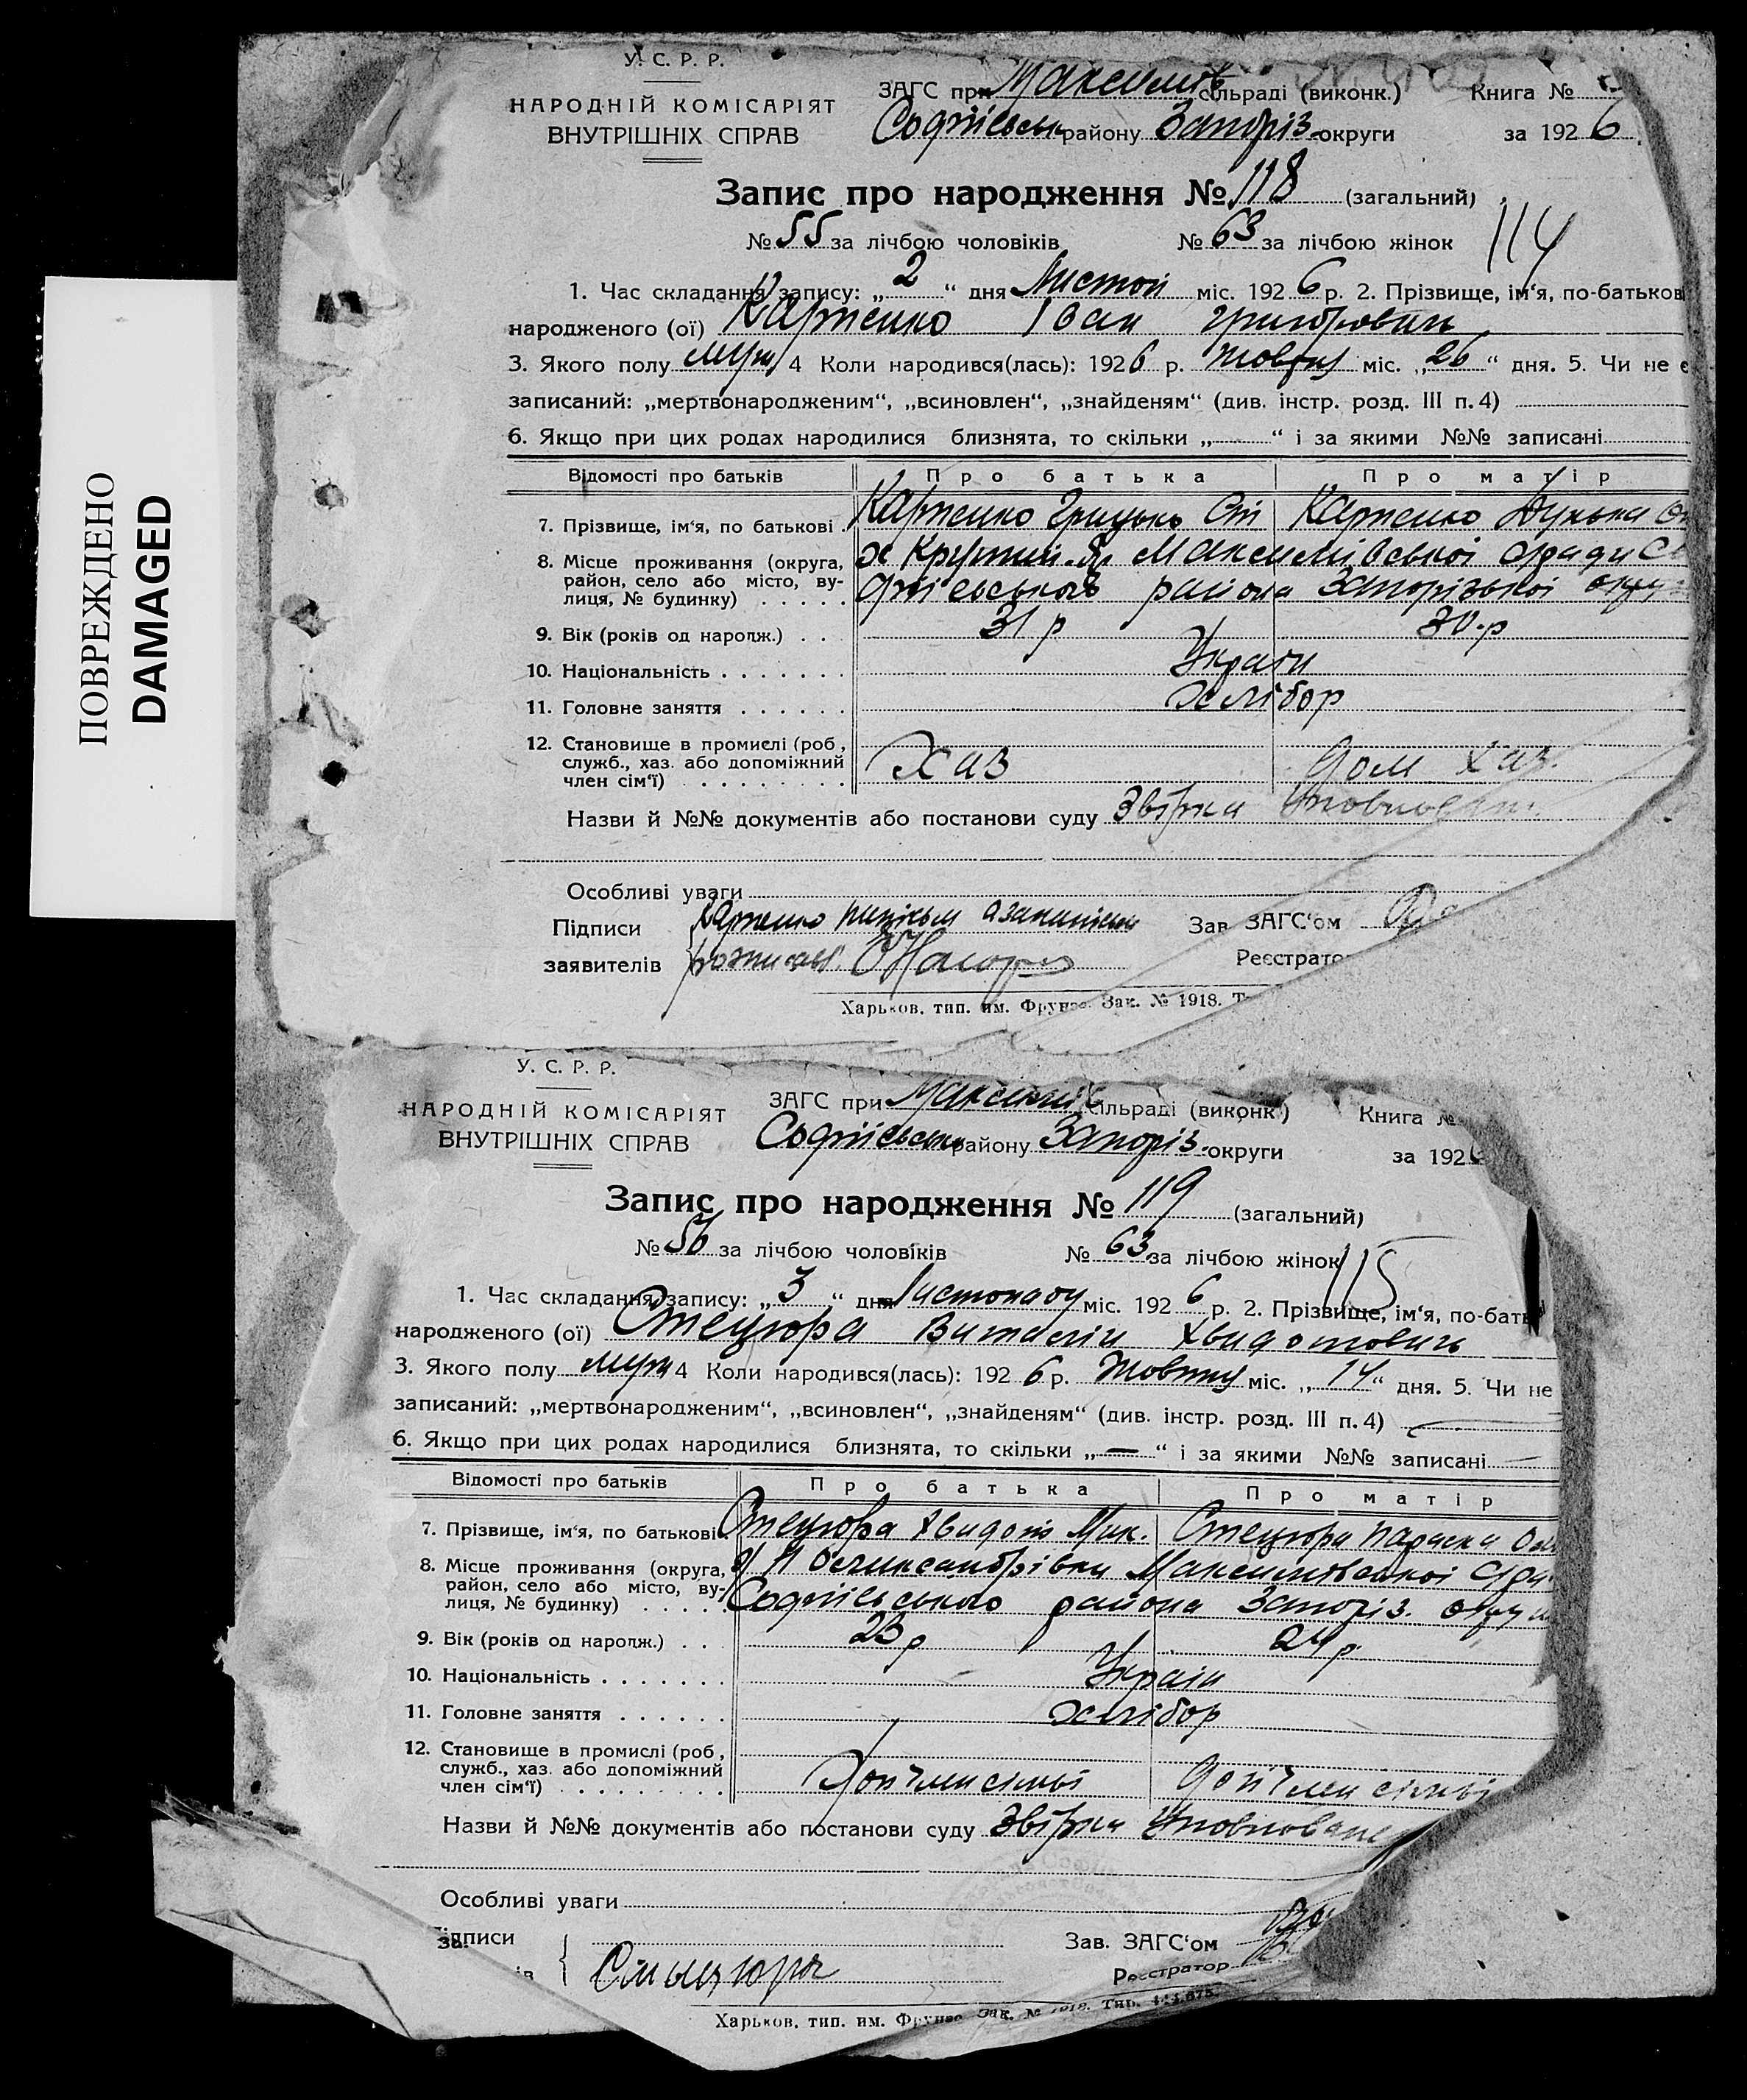 ПОВРЕЖДЕНО
DAMAGED
У. С. Р. Р.
НАРОДНІЙ КОМІСАРІЯТ
ВНУТРІШНІХ СПРАВ
ЗАГС при Максимів сільраді (виконк.) Книга №
Софіївськ району Запоріз. округи за 1926
Запис про народження № 118 (загальний)
№ 55 за лічбою чоловіків № 63 за лічбою жінок 114
1. Час складання запису: „2“ дня Листоп міс. 1926 р. 2. Прізвище, ім‘я, по-батьков
народженого (ої) Карпенко Іван Григорович
3. Якого полу муж 4 Коли народився(лась): 1926 р. Жовтня міс. „26“ дня. 5. Чи не є
записаний: „мертвонародженим“, „всиновлен“, „знайденям“ (див. інстр. розд. III п. 4)
6. Якщо при цих родах народилися близнята, то скільки „—“ і за якими №№ записані
Відомості про батьків Про батька Про матір
7. Прізвище, ім‘я, по батькові Карпенко Грицько Карпенко
8. Місце проживання (округа, район, село або місто, вулиця, № будинку) Максимівської с/ради Со
фіївського района Запорізької округи
9. Вік (років од народж.) 31 р 30 р
10. Національність Україн
11. Головне заняття Хлібор
12. Становище в промислі (роб., служб., хаз. або допоміжний член сім‘ї) Хаз дом хаз.
Назви й №№ документів або постанови суду Звірка
Особливі уваги
Підписи Карпенко
заявителів
Зав. ЗАГС‘ом
Реєстрато
Харьков. тип. им. Фрунзе. Зак. № 1918. Т
У. С. Р. Р.
НАРОДНІЙ КОМІСАРІЯТ
ВНУТРІШНІХ СПРАВ
ЗАГС при Максимів сільраді (виконк.) Книга №
Софіївськ району Запоріз. округи за 192
Запис про народження № 119 (загальний)
№ 56 за лічбою чоловіків № 63 за лічбою жінок 115
1. Час складання запису: „3“ дня Листопаду міс. 1926 р. 2. Прізвище, ім‘я, по-бать
народженого (ої) Стецюра Виталій Хвидотович
3. Якого полу муж 4 Коли народився(лась): 1926 р. Жовтня міс. „14“ дня. 5. Чи не
записаний: „мертвонародженим“, „всиновлен“, „знайденям“ (див. інстр. розд. III п. 4)
6. Якщо при цих родах народилися близнята, то скільки „—“ і за якими №№ записані
Відомості про батьків Про батька Про матір
7. Прізвище, ім‘я, по батькові Стецюра Хвидот Мик. Стецюра Параска
8. Місце проживання (округа, район, село або місто, вулиця, № будинку) Максимівської с/ра
Софіївського района Запоріз. округи
9. Вік (років од народж.) 23 р 24 р
10. Національність Україн
11. Головне заняття Хлібор
12. Становище в промислі (роб., служб., хаз. або допоміжний член сім‘ї) Доп член сімьї доп член сімьї
Назви й №№ документів або постанови суду Звірка
Особливі уваги
Підписи
Стыцюра
Зав. ЗАГС‘ом
Реєстратор
Харьков. тип. им. Фрунзе. Зак. № 1918. Тир.